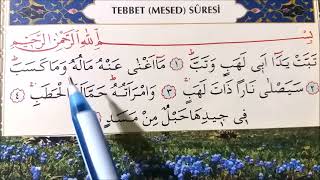 TEBBET (MESED) SÛRESİ
بِسْمِ اللهِ الرَّحْمٰنِ الرَّحِيمِ
تَبَّتْ يَدَٓا اَبِى لَهَبٍ وَتَبَّ ١ مَٓا اَغْنٰى عَنْهُ مَالُهُ وَمَا كَسَبَ
٢ سَيَصْلٰى نَارًا ذَاتَ لَهَبٍ ٣ وَامْرَاَتُهُ حَمَّالَةَ الْحَطَبِ ٤
فِى جِيدِهَا حَبْلٌ مِنْ مَسَدٍ